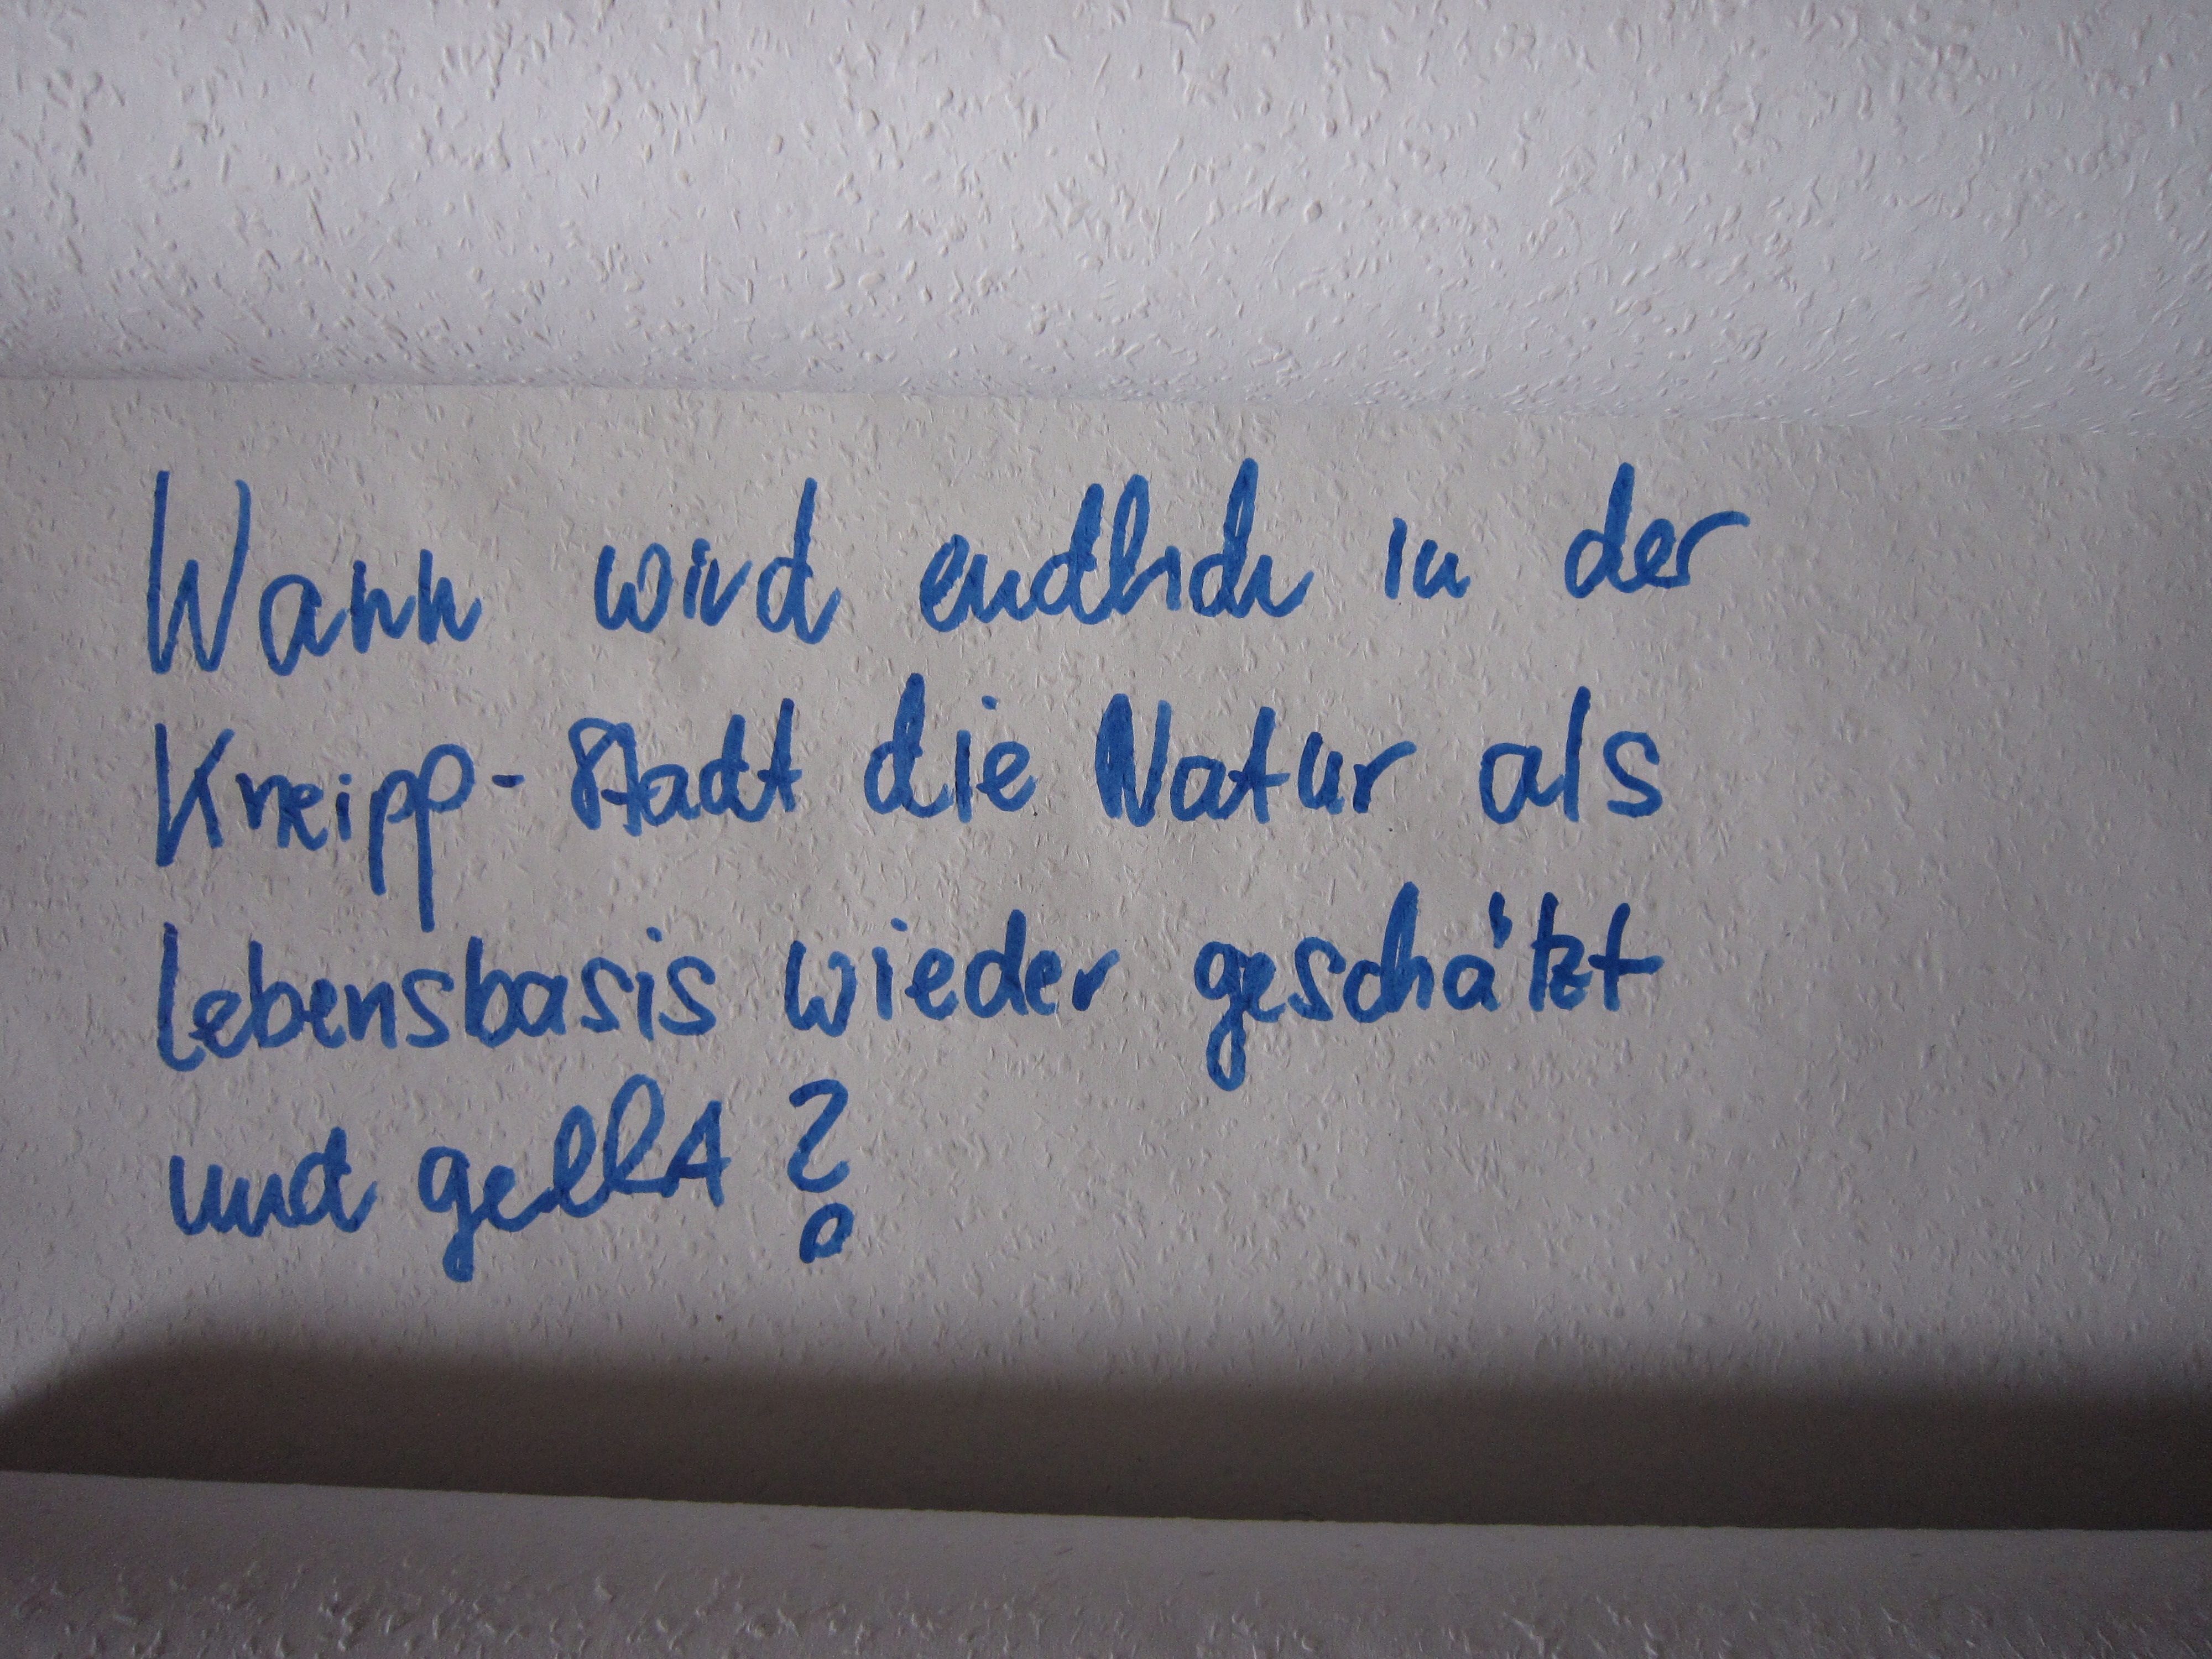 Wann wird endlich in der
Kneipp-Stadt die Natur als
Lebensbasis wieder geschätzt
und
?